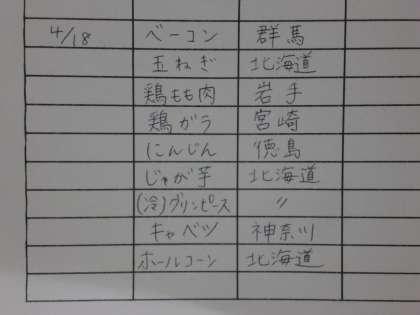 4/18 ベーコン 群馬
玉ねぎ 北海道
鶏もも肉 岩手
鶏ガラ 宮崎
にんじん 徳島
じゃが芋 北海道
(冷)グリンピース 〃
キャベツ 神奈川
ホールコーン 北海道